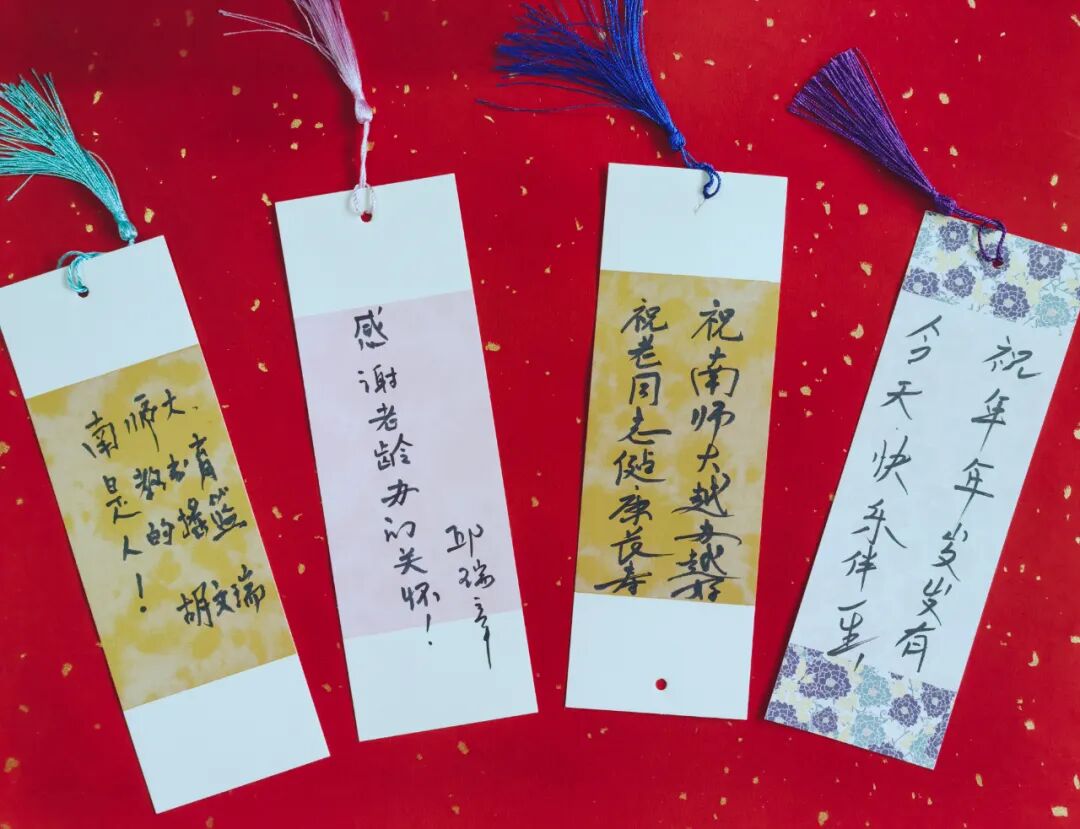 南师大、
是教育
人的摇篮
！
胡文瑞
感谢老龄办的关怀！
邱瑞章
祝南师大越办越好
祝老同志健康长寿
祝年年岁岁有
今天.快乐伴一生！